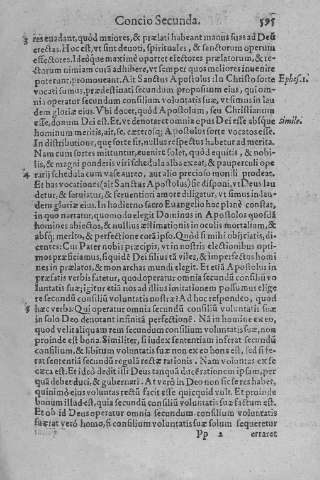 Concio Secunda. 595
3 res euadant, quòd maiores, & prælati habeant manus suas ad Deũ
erectas. Hoc est, vt sint deuoti, spirituales, & sanctorum operum
effectores. Ideóque maximè oportet electores prælatorum, & re-
ctorum nimiam curã adhibere, vt semper quos meliores inuenire
poterunt, promoueant. Ait Sanctus Apostolus: In Christo sorte Ephes. 1.
vocati sumus, prædestinati secundum propositum eius, qui om-
nia operatur secundum consilium voluntatis suæ, vt simus in lau-
dem gloriæ eius. Vbi docet, quòd Apostolum, seu Christianum
esse, donum Dei est. Et, vt denotet omnia opus Dei esse absque Simile.
hominum meritis, ait, se, cæterosq; Apostolos sorte vocatos esse.
In distributione, quę sorte fit, nullus respectus habetur ad merita.
Nam cum sortes mittuntur, euenire solet, quòd equitis, & nobi-
lis, & magni ponderis viri schedula alba exeat, & pauperculi ope
4 rarij schedula cum vase aureo, aut alio precioso monili prodeat.
Et has vocationes (ait Sanctus Apostolus) sic disponi, vt Deus lau
detur, & seruentiori amore diligatur, vt simus in lau-
dem gloriæ eius. In hodierno sacro Euangelio hoc planè constat,
in quo narratur, quomodo elegit Dominus in Apostolos quosdã
homines abiectos, & nullius æstimationis in oculis mortalium, &
absq; merito, & perfectione corã ipso. Quòd si mihi obijciatis, di-
centes: Cur Pater nobis præcipis, vt in nostris electionibus opti-
mos præficiamus, siquidẽ Dei filius tã viles, & imperfectos homi
nes in prælatos, & monarchas mundi elegit. Et etiã Apostolus in
præfatis verbis fatetur, quòd operatur omnia secundũ consiliũ vo
luntatis suæ; igitur etiã nos ad illius imitationem possumus elige
re secundũ consiliũ voluntatis nostræ? Ad hoc respondeo, quòd
5 hæc verba: Qui operatur omnia secundũ consiliũ voluntatis suæ
in solo Deo denotant infinitã perfectionẽ. Nã in homine ex eo,
quod velit aliquam rem secundum consilium voluntatis suæ, non
proinde est bona. Similiter, si iudex sententiam inferat secundũ
consilium, & libitum voluntatis suæ non ex eo bona est, sed si fe-
rat sententiã secundũ regulã rectæ rationis. Nam voluntas ex se
cæca est. Et ideò dedit illi Deus tanquã ducẽ rationem ipsam, per
quã debet duci, & gubernari. At verò in Deo non sic se res habet,
quinimò eius voluntas rectũ facit esse quicquid vult. Et proinde
bonum illud est, quia secundũ consiliũ voluntatis suæ factum est.
Et ob id Deus operatur omnia secundum consilium voluntatis
suæ: at verò homo, si consilium voluntatis suæ solum sequeretur
Pp 2 erraret